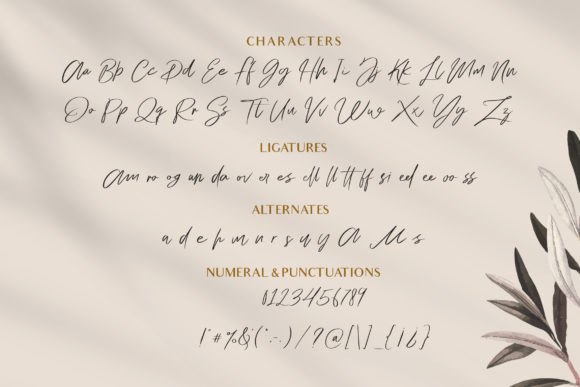 CHARACTERS
Aa Bb Cc Dd Ee Ff Gg Hh Ii Jj Kk Ll Mm Nn
Oo Pp Qq Rr Ss Tt Uu Vv Ww Xx Yy Zz
LIGATURES
am ro og un da ov er es ell ll tt ff si eel ee oo ss
ALTERNATES
a d e h m n r s u y A M s
NUMERAL & PUNCTUATIONS
0123456789
!"#%&'(*,-.)/?@[\]_{¡¿}